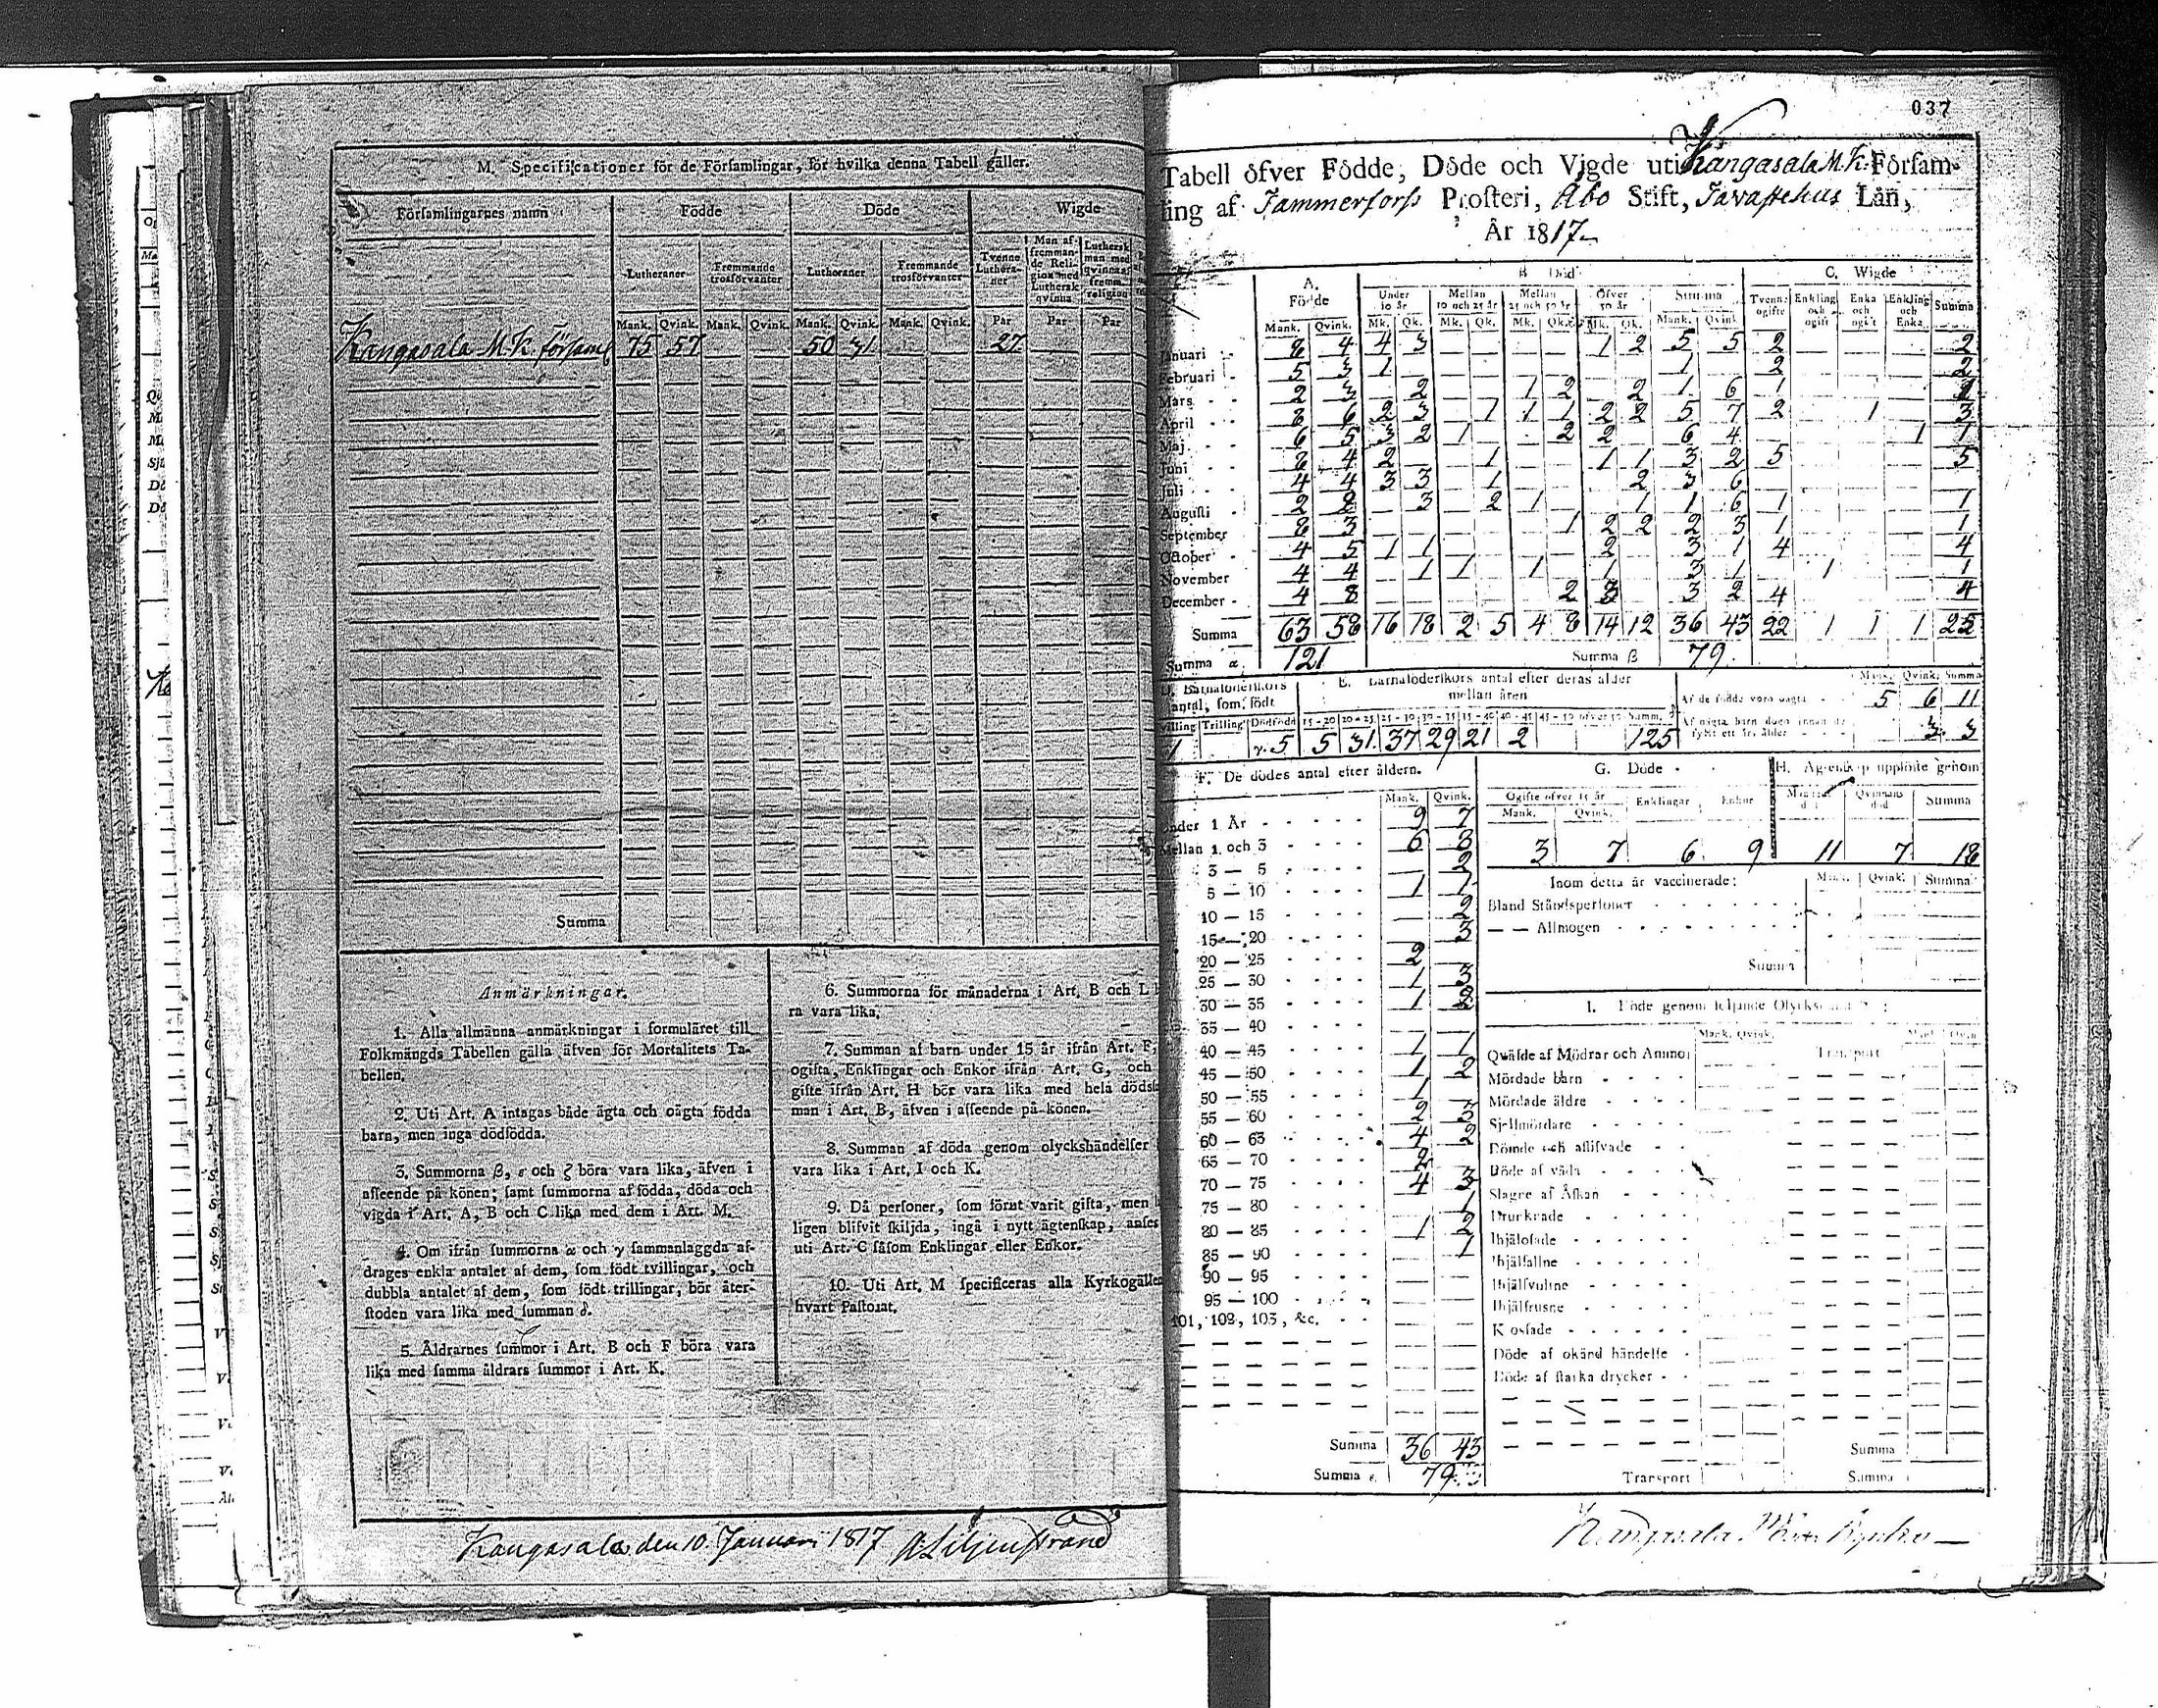 M. Specificationer för de Församlingar, för hvilka denna Tabell gäller.
Församlingarnes namn Födde Döde Wigde
Lutheraner Fremmande trosförvanter Lutheraner Fremmande trosförvanter Tvenne Lutheraner Man af fremmande Religion med Luthersk qvinna Luthersk man med qvinna af fremm. religion
Mank. Qvink. Mank. Qvink. Mank. Qvink. Mank. Qvink. Par Par Par
Kangasala M.K. församl 75 57 50 31 27
Summa
Anmärkningar.
1. Alla allmänna anmärkningar i formuläret till
Folkmängds Tabellen gälla äfven för Mortalitets Ta-
bellen.
2. Uti Art. A intagas både ägta och oägta födda
barn, men inga dödfödda.
3. Summorna β, ε och ζ böra vara lika, äfven i
afseende på könen; samt summorna af födda, döda och
vigda i Art. A, B och C lika med dem i Art. M.
4. Om ifrån summorna α och γ sammanlaggda af-
drages enkla antalet af dem, som födt tvillingar, och
dubbla antalet af dem, som födt trillingar, bör åter-
stoden vara lika med summan δ.
5. Åldrarnes summor i Art. B och F böra vara
lika med samma åldrars summor i Art. K.
6. Summorna för månaderna i Art. B och L
ra vara lika.
7. Summan af barn under 15 år ifrån Art. F,
ogifta, Enklingar och Enkor ifrån Art. G, och
gifte ifrån Art. H bör vara lika med hela döds
man i Art. B, äfven i afseende på könen.
8. Summan af döda genom olyckshändelser
vara lika i Art. I och K.
9. Då personer, som förut varit gifta, men
ligen blifvit skiljda, ingå i nytt ägtenskap, anses
uti Art. C såsom Enklingar eller Enkor.
10. Uti Art. M specificeras alla Kyrkogäller
hvart Pastorat.
Kangasala den 10. Januari 1817 A Liljenstrand
037
Tabell öfver Födde, Döde och Vigde uti Kangasala M.K. Försam-
ling af Tammerfors Prosteri, Åbo Stift, Tavastehus Län,
År 1817
A. Födde B Död C. Wigde
Under 10 år Mellan 10 och 25 år Mellan 25 och 50 år Öfver 50 år Summa Tvenne ogifte Enkling och ogift Enka och ogift Enkling och Enka Summa
Mank. Qvink. Mk. Qk. Mk. Qk. Mk. Qk. Mk. Qk. Mank. Qvink.
Januari 8 4 4 3 1 2 5 5 2 2
Februari 5 3 1 1 2 2
Mars 2 3 2 1 2 2 1 6 1
April 8 6 2 3 1 1 1 2 2 5 7 2 1 3
Maj 6 5 3 2 1 2 2 6 4 1 1
Juni 4 2 1 1 1 3 2 5 5
Juli 4 4 3 3 1 2 3 6
Augusti 2 3 2 1 1 1 6 1 1
September 8 3 1 2 2 2 3 1 1
October 4 5 1 1 2 3 1 4 4
November 4 4 1 1 1 1 3 1 1 1
December 4 8 2 3 3 2 4 4
Summa 63 58 16 18 2 5 4 8 14 12 36 43 22 1 1 1 25
Summa α 121 Summa β 79.
D. Barnaföderskors antal, som födt
E. Barnaföderskors antal efter deras ålder mellan åren
Mank. Qvink. Summa
Af de födde voro oägta 5 6 11
villing Trilling Dödfödd 15-20 20-25 25-30 30-35 35-40 40-45 45-50 öfver 50 Summ.
1 γ. 5 5 31 37 29 21 2 125
Af oägta barn döen innan de fyllt ett års ålder 3 3
F. De dödes antal efter åldern.
Mank. Qvink.
under 1 År 9 7
Mellan 1 och 3 6 8
3 — 5 2
5 — 10 1 1
10 — 15 2
15 — 20 3
20 — 25 2
25 — 30 1 3
30 — 35 1 2
35 — 40
40 — 45 1 1
45 — 50 1 2
50 — 55 1
55 — 60 2 3
60 — 65 4 2
65 — 70 2
70 — 75 4 3
75 — 80 1
80 — 85 1 2
85 — 90 1
90 — 95
95 — 100
101, 102, 103, &c.
Summa 36 43
Summa ε. 79.
G. Döde
Ogifte öfver 15 år Enklingar Enkor
Mank. Qvink.
3 7 6 9
H. Ägtenskap upplöste genom
Mannens död Qvinnans död Summa
11 7 18
Inom detta år vaccinerade: Mank. Qvink. Summa
Bland Ståndspersoner
— — Allmogen
Summa
I. Döde genom följande Olycks
Mank. Qvink. Transport
Qwäfde af Mödrar och Ammor
Mördade barn
Mördade äldre
Sjelfmördare
Dömde och aflifvade
Döde af våda
Slagne af Åskan
Drunknade
Ihjälosade
Ihjälfallne
Ihjälsvultne
Ihjälfrusne
Kolosade
Döde af okänd händelse
Döde af starka drycker
Summa
Transport Summa
Kangasala